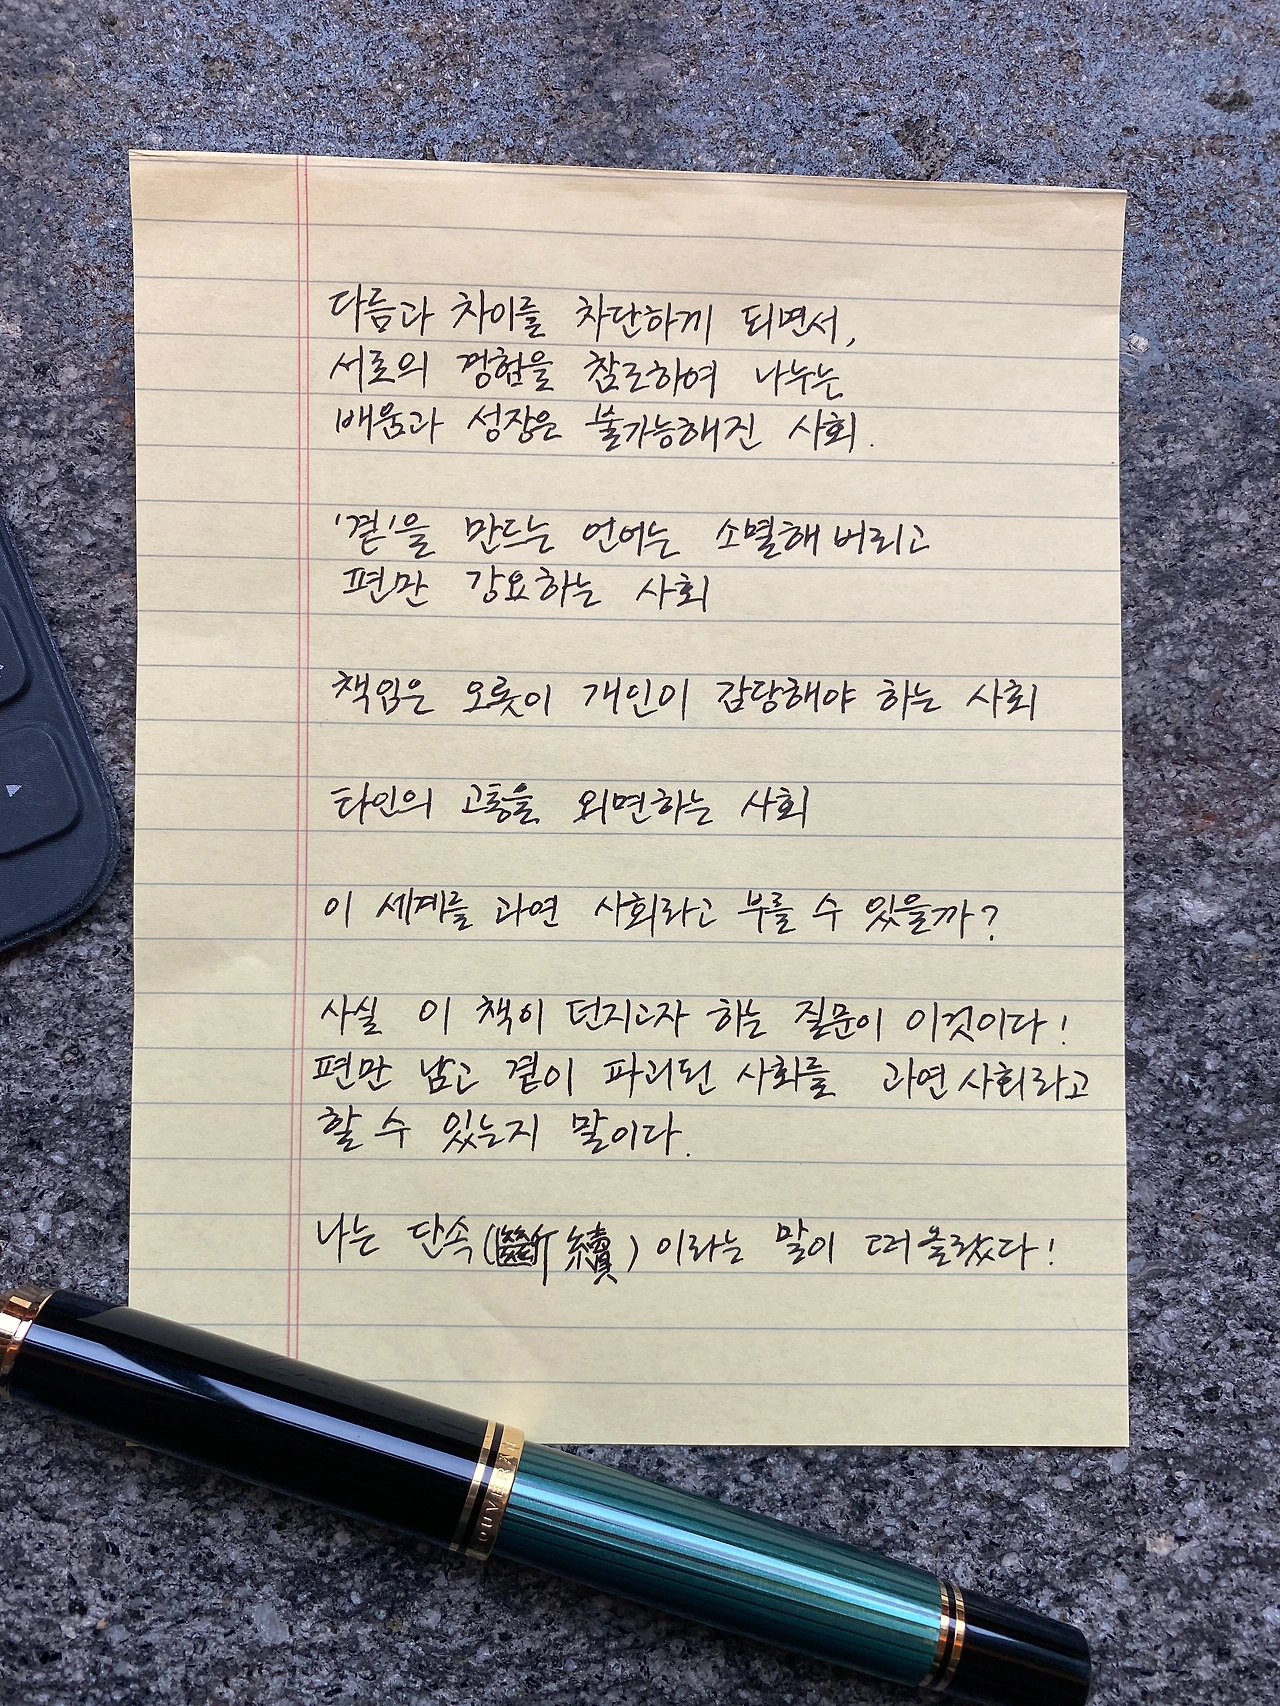 다름과 차이를 차단하게 되면서,
서로의 경험을 참조하여 나누는
배움과 성장은 불가능해진 사회.
'곁'을 만드는 언어는 소멸해 버리고
편만 강요하는 사회
책임은 오롯이 개인이 감당해야 하는 사회
타인의 고통을 외면하는 사회
이 세계를 과연 사회라고 부를 수 있을까?
사실 이 책이 던지고자 하는 질문이 이것이다!
편만 남고 곁이 파괴된 사회를 과연 사회라고
할 수 있는지 말이다.
나는 단속(斷續)이라는 말이 떠올랐다!
OUVERÄN